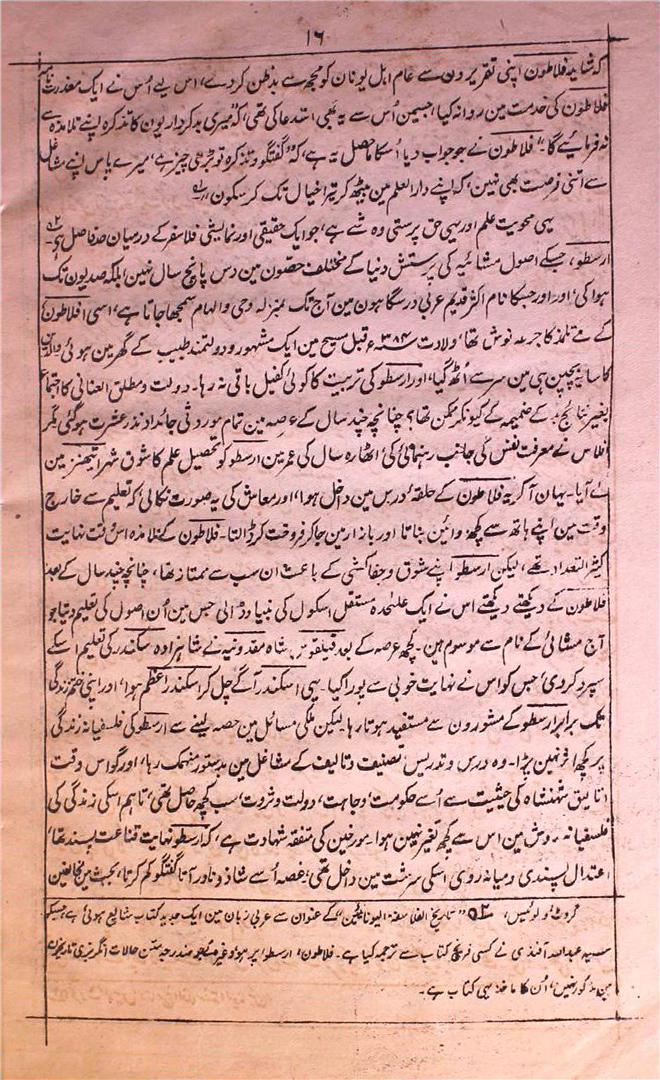 ۱۶
کہ شاید فلاطون اپنی تقریر دن سے عام اہل یونان کو مجھ سے بدظن کر دے، اس لیے اُس نے ایک معذرت نامہ
فلاطون کی خدمت مین روانہ کیا، جسمین اُس سے یہ بھی استدعا کی تھی، کہ "میری بدکرداریون کا تذکرہ اپنے تلامذہ سے
نہ فرمائیے گا۔" فلاطون نے جو جواب دیا، اُسکا ماحصل یہ ہے، کہ "گفتگو و تذکرہ تو بڑی چیز ہے، میرے پاس اپنے مشاغل
سے اتنی فرصت بھی نہین، کہ اپنے دارالعلم مین بیٹھ کر تیرا خیال تک کر سکون"
یہی محویت علم اور یہی حق پرستی وہ شے ہے، جو ایک حقیقی اور نمایشی فلاسفر کے درمیان حد فاصل ہے۔
ارسطو، جسکے اصول مشائیہ کی پرستش دنیا کے مختلف حصّون مین دس پانچ سال نہین بلکہ صدیون تک
ہوا کی، اور اور جسکا نام اکثر قدیم عربی درسگاہون مین آج تک بمنزلہ وحی و الہام سمجھا جاتا ہے، اسی افلاطون
کے مے تلمذ کا جرعہ نوش تھا، ولادت سنہ ۳۸۴ قبل مسیح مین ایک مشہور و دولتمند طبیب کے گھر مین ہوئی والدین
کا سایہ بچپن ہی مین سر سے اُٹھ گیا، اور ارسطو کی تربیت کا کوئی کفیل باقی نہ رہا۔ دولت و مطلق العنانی کا اجتماع
بغیر نتائج بد کے ضمیمہ کے کیونکر ممکن تھا؟ چنانچہ چند سال کے عرصہ مین تمام موروثی جائداد نذر عشرت ہو گئی مگر
افلاس نے معرفت نفس کی جانب رہنمائی کی، اٹھارہ سال کی عمر مین ارسطو کو تحصیل علم کا شوق شہر ایتھنز مین
لے آیا۔ یہان آ کر یہ فلاطون کے حلقۂ درس مین داخل ہوا، اور معاش کی یہ صورت نکالی کہ تعلیم سے خارج
وقت مین اپنے ہاتھ سے کچھ دوائین بناتا اور بازار مین جا کر فروخت کر ڈالتا۔ فلاطون کے تلامذہ اس وقت نہایت
کثیر التعداد تھے، لیکن ارسطو اپنے شوق و جفاکشی کے باعث ان سب سے ممتاز تھا، چنانچہ چند سال کے بعد
فلاطون کے دیکھتے دیکھتے اس نے ایک علٰحدہ مستقل اسکول کی بنیاد ڈالی جس مین اُن اصول کی تعلیم دیتا جو
آج مشائی کے نام سے موسوم ہین۔ کچھ عرصہ کے بعد فیلقوس شاہ مقدونیہ نے شاہزادہ سکندر کی تعلیم اسکے
سپرد کر دی، جس کو اس نے نہایت خوبی سے پورا کیا۔ یہی اسکندر آگے چل کر اسکندر اعظم ہوا، اور اپنی ختم زندگی
تک برابر ارسطو کے مشورون سے مستفید ہوتا رہا۔ لیکن ملکی مسائل مین حصہ لینے سے ارسطو کی فلسفیانہ زندگی
پر کچھ اثر نہین پڑا۔ وہ درس و تدریس، تصنیف و تالیف کے مشاغل مین بدستور منہمک رہا، اور گو اس وقت
اتالیق شہنشاہ کی حیثیت سے اُسے حکومت، وجاہت، دولت و ثروت، سب کچھ حاصل تھی، تاہم اسکی زندگی کی
فلسفیانہ روش مین اس سے کچھ تغیر نہین ہوا۔ مورخین کی متفقہ شہادت ہے، کہ ارسطو نہایت قناعت پسند تھا،
اعتدال پسندی و میانہ روی اسکی سرشت مین داخل تھی، غصہ اُسے شاذ و نادر آتا گفتگو کم کرتا، بحث مین مخالفین
گروٹ، و لوئیس، ۵۲ "تاریخ الفلاسفۃ الیونانیین" کے عنوان سے عربی زبان مین ایک جدید کتاب شایع ہوئی ہے جسکو
عبد اللہ آفندی نے کسی فرنچ کتاب سے ترجمہ کیا ہے۔ فلاطون، ارسطو، پرہو وغیرہ کے جو مندرجہ متن حالات انگریزی تاریخون
مین مذکور نہین، اُن کا ماخذ یہی کتاب ہے۔